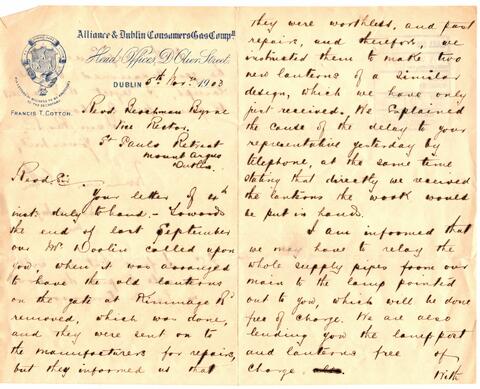 Alliance & Dublin Consumers Gas Compy
Head Offices D'Olier Street
DUBLIN 5th Novr 1903
FRANCIS T. COTTON.
Revd Byrne
Vice Rector
St Pauls Retreat
Mount Argus
Dublin
Revd Sir
Your letter of 4th
inst. duly to hand. - Towards
the end of last September
our Mr Doolin called upon
you, when it was arranged
to have the old lanterns
on the gate at Kimmage Rd
removed, which was done,
and they were sent on to
the manufacturers for repairs,
but they informed us that
they were worthless, and past
repairs, and therefore, we
instructed them to make two
new lanterns of a similar
design, which we have only
just received. We explained
the cause of the delay to your
representative yesterday by
telephone, at the same time
stating that directly we received
the lanterns the work would
be put in hand.
I am informed that
we may have to relay the
whole supply pipes from our
main to the lamp pointed
out to you, which will be done
free of charge. We are also
lending you the lamppost
and lanterns free of
charge
With